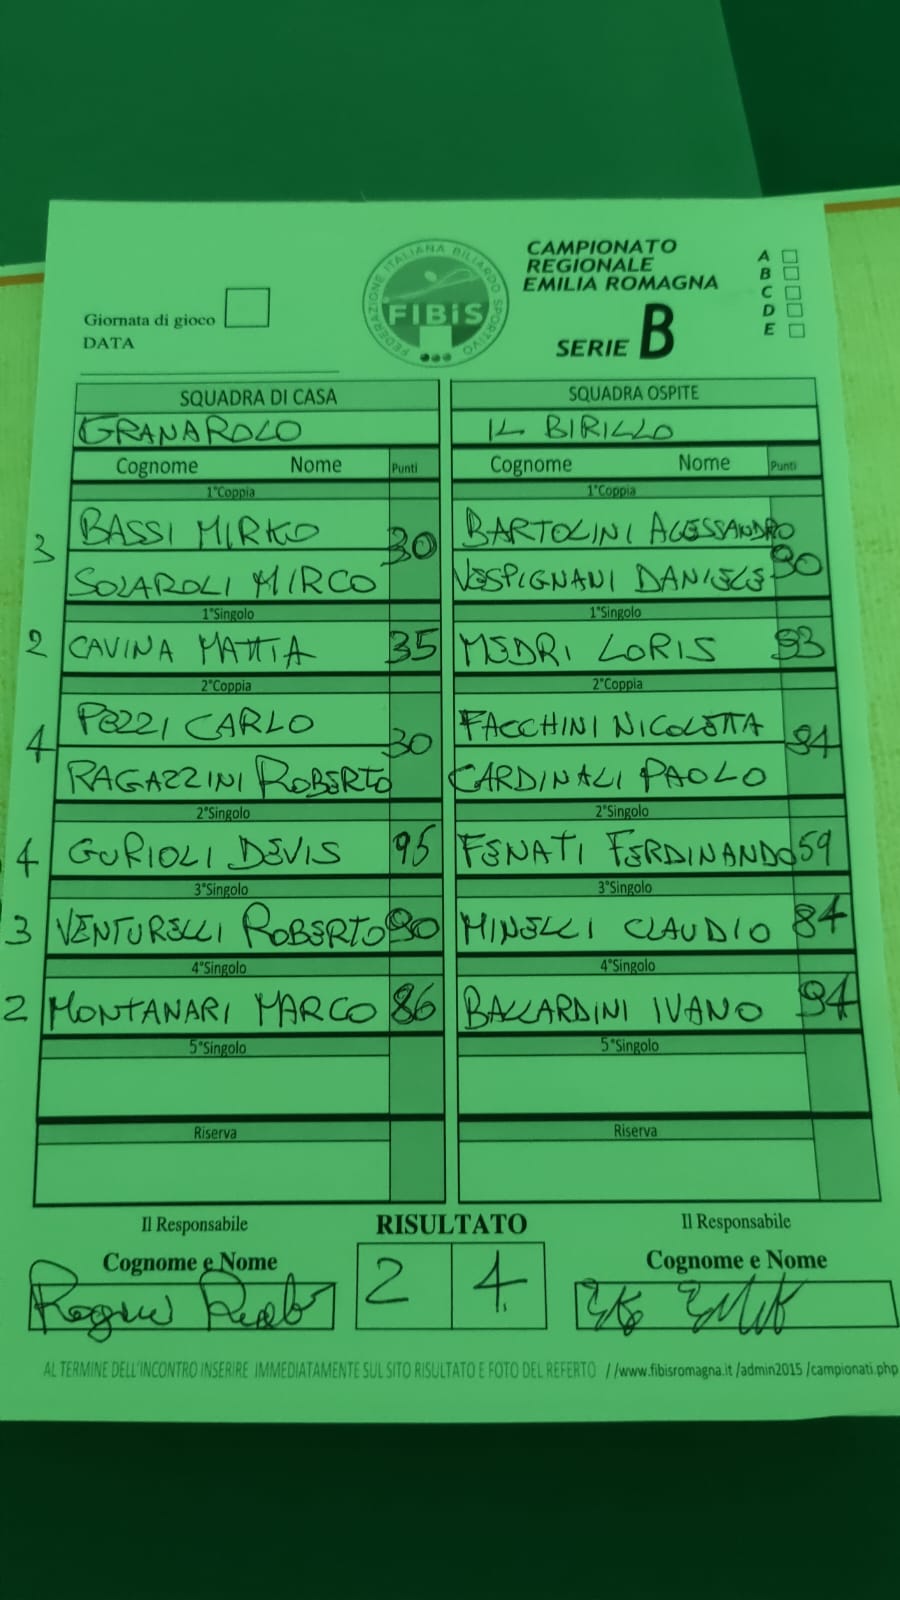 CAMPIONATO
REGIONALE
EMILIA ROMAGNA
SERIE B
A
B
C
D
E
FEDERAZIONE ITALIANA BILIARDO SPORTIVO
FIBiS
Giornata di gioco
DATA
SQUADRA DI CASA SQUADRA OSPITE
GRANAROLO IL BIRILLO
Cognome Nome Punti Cognome Nome Punti
1°Coppia 1°Coppia
3 BASSI MIRKO 30 BARTOLINI ALESSANDRO 90
SOLAROLI MIRCO VESPIGNANI DANIELE
1°Singolo 1°Singolo
2 CAVINA MATTIA 35 MEDRI LORIS 93
2°Coppia 2°Coppia
4 PEZZI CARLO 30 FACCHINI NICOLETTA 94
RAGAZZINI ROBERTO CARDINALI PAOLO
2°Singolo 2°Singolo
4 GURIOLI DEVIS 95 FENATI FERDINANDO 59
3°Singolo 3°Singolo
3 VENTURELLI ROBERTO 90 MINELLI CLAUDIO 84
4°Singolo 4°Singolo
2 MONTANARI MARCO 86 BALLARDINI IVANO 94
5°Singolo 5°Singolo
Riserva Riserva
Il Responsabile RISULTATO Il Responsabile
Cognome e Nome 2 4 Cognome e Nome
AL TERMINE DELL'INCONTRO INSERIRE IMMEDIATAMENTE SUL SITO RISULTATO E FOTO DEL REFERTO //www.fibisromagna.it /admin2015 /campionati.php